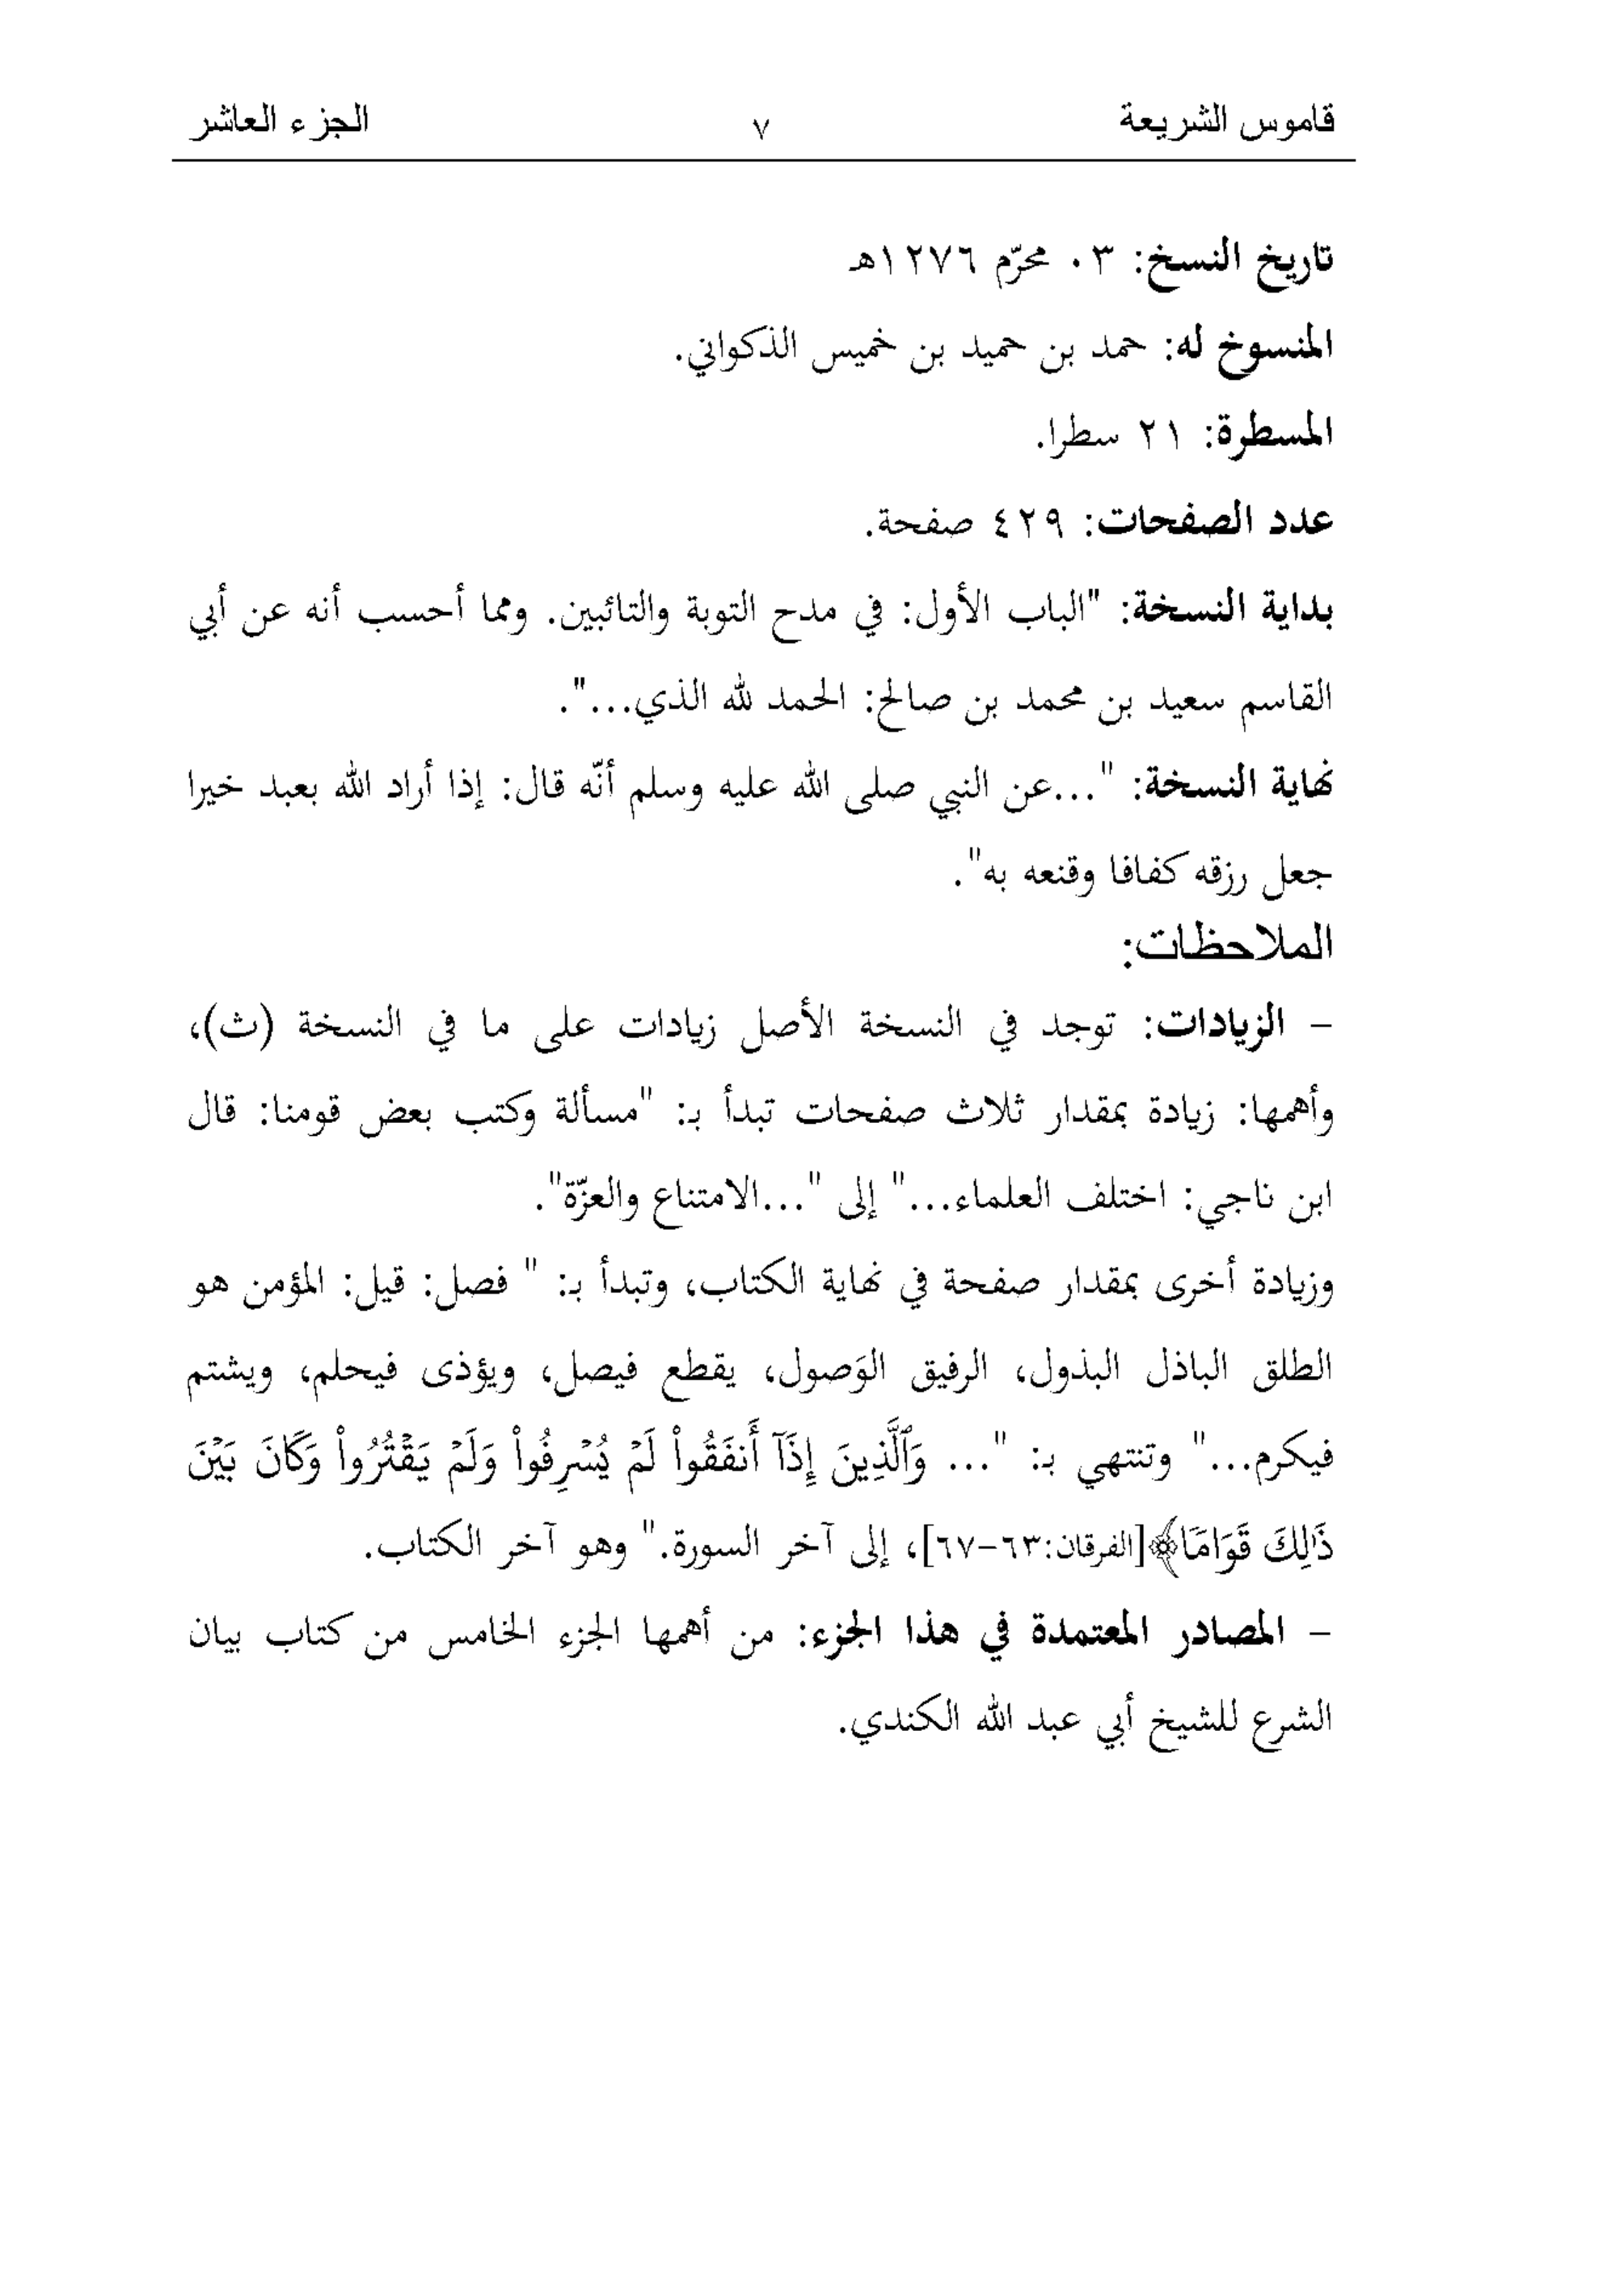 قاموس الشريعة ٧ الجزء العاشر
تاريخ النسخ: ٠٣ محرّم ١٢٧٦هـ
المنسوخ له: حمد بن حميد بن خميس الذكواني.
المسطرة: ٢١ سطرا.
عدد الصفحات: ٤٢٩ صفحة.
بداية النسخة: "الباب الأول: في مدح التوبة والتائبين. ومما أحسب أنه عن أبي
القاسم سعيد بن محمد بن صالح: الحمد لله الذي...".
نهاية النسخة: "...عن النبي صلى الله عليه وسلم أنّه قال: إذا أراد الله بعبد خيرا
جعل رزقه كفافا وقنعه به".
الملاحظات:
– الزيادات: توجد في النسخة الأصل زيادات على ما في النسخة (ث)،
وأهمها: زيادة بمقدار ثلاث صفحات تبدأ بـ: "مسألة وكتب بعض قومنا: قال
ابن ناجي: اختلف العلماء..." إلى "...الامتناع والعزّة".
وزيادة أخرى بمقدار صفحة في نهاية الكتاب، وتبدأ بـ: " فصل: قيل: المؤمن هو
الطلق الباذل البذول، الرفيق الوَصول، يقطع فيصل، ويؤذى فيحلم، ويشتم
فيكرم..." وتنتهي بـ: "... وَٱلَّذِينَ إِذَآ أَنفَقُواْ لَمۡ يُسۡرِفُواْ وَلَمۡ يَقۡتُرُواْ وَكَانَ بَيۡنَ
ذَٰلِكَ قَوَامٗا﴾[الفرقان:٦٣-٦٧]، إلى آخر السورة." وهو آخر الكتاب.
– المصادر المعتمدة في هذا الجزء: من أهمها الجزء الخامس من كتاب بيان
الشرع للشيخ أبي عبد الله الكندي.